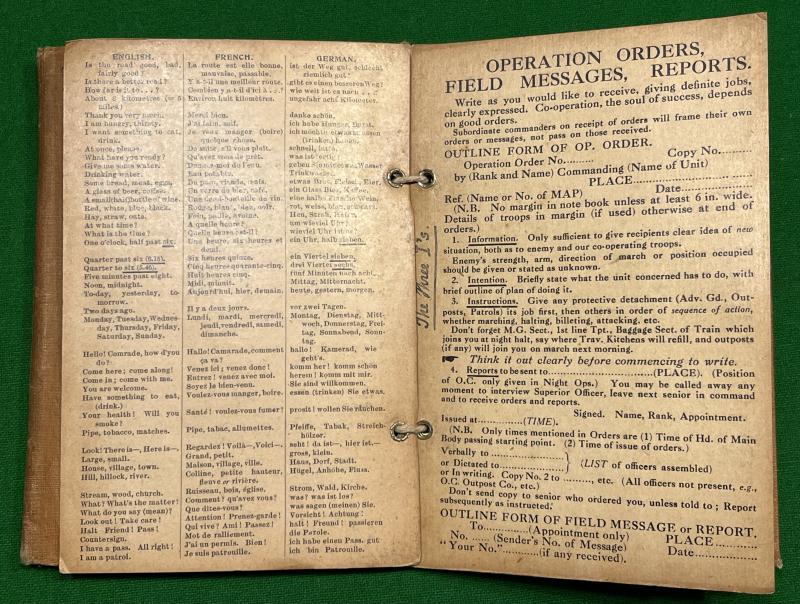 ENGLISH.
Is the road good, bad,
fairly good?
Is there a better road?
How far is it to...?
About 8 kilometres (= 5
miles.)
Thank you very much.
I am hungry, thirsty.
I want something to eat,
drink.
At once, please.
What have you ready?
Give me some water.
Drinking water.
Some bread, meat, eggs.
A glass of beer, coffee.
A small (half) bottle of wine.
Red, white, blue, black.
Hay, straw, oats.
At what time?
What is the time?
One o'clock, half past six.
Quarter past six (6.15).
Quarter to six (5.45).
Five minutes past eight.
Noon, midnight.
To-day, yesterday, to-
morrow.
Two days ago.
Monday, Tuesday, Wednes-
day, Thursday, Friday,
Saturday, Sunday.
Hello! Comrade, how d'you
do?
Come here; come along!
Come in; come with me.
You are welcome.
Have something to eat,
(drink.)
Your health! Will you
smoke?
Pipe, tobacco, matches.
Look! There is—, Here is—.
Large, small.
House, village, town.
Hill, hillock, river.
Stream, wood, church.
What? What's the matter!
What do you say (mean)?
Look out! Take care!
Halt Friend! Pass!
Countersign.
I have a pass. All right!
I am a patrol.
FRENCH.
La route est elle bonne,
mauvaise, passable.
Y a-t-il une meilleure route.
Combien y a-t-il d'ici à...?
Environ huit kilomètres.
Merci bien.
J'ai faim, soif.
Je veux manger (boire)
quelque chose.
De suite, s'il vous plaît.
Qu'avez vous de prêt.
Donnez-moi de l'eau.
Eau potable.
Du pain, viande, œufs.
Un verre de bière, café.
Une demi-bouteille de vin.
Rouge, blanc, bleu, noir.
Foin, paille, avoine.
A quelle heure?
Quelle heure est-il?
Une heure, six heures et
demi.
Six heures quinze.
Cinq heures quarante-cinq.
Huit heures cinq.
Midi, minuit.
Aujourd'hui, hier, demain.
Il y a deux jours.
Lundi, mardi, mercredi,
jeudi, vendredi, samedi,
dimanche.
Hallo! Camarade, comment
ça va?
Venez ici; venez donc!
Entrez! venez avec moi.
Soyez le bien-venu.
Voulez-vous manger, boire.
Santé! voulez-vous fumer!
Pipe, tabac, allumettes.
Regardez! Voilà—, Voici—.
Grand, petit.
Maison, village, ville.
Colline, petite hauteur,
fleuve or rivière.
Ruisseau, bois, église.
Comment? qu'avez vous?
Que dites-vous?
Attention! Prenez-garde!
Qui vive! Ami! Passez!
Mot de ralliement.
J'ai un permis. Bien!
Je suis patrouille.
GERMAN.
ist der Weg gut, schlecht
ziemlich gut?
gibt es einen besseren Weg?
wie weit ist es nach...?
ungefähr acht Kilometer.
danke schön.
ich habe Hunger, Durst.
ich möchte etwas essen
(trinken) haben.
schnell, bitte.
was ist fertig?
geben Sie mir etwas Wasser
Trinkwasser.
etwas Brot, Fleisch, Eier.
ein Glas Bier, Kaffee.
eine halbe Flasche Wein.
rot, weiss, blau, schwarz.
Heu, Stroh, Hafer.
um wieviel Uhr?
wieviel Uhr ist es?
ein Uhr, halb sieben.
ein Viertel sieben.
drei Viertel sechs.
fünf Minuten nach acht.
Mittag, Mitternacht.
heute, gestern, morgen.
vor zwei Tagen.
Montag, Dienstag, Mitt-
woch, Donnerstag, Frei-
tag, Sonnabend, Sonn-
tag.
hallo! Kamerad, wie
geht's.
komm her! komm schön
herein! komm mit mir.
Sie sind willkommen.
essen (trinken) Sie etwas.
prosit! wollen Sie räuchen.
Pfeiffe, Tabak, Streich-
hölzer.
seht! da ist—, hier ist—.
gross, klein.
Haus, Dorf, Stadt.
Hügel, Anhöhe, Fluss.
Strom, Wald, Kirche.
was? was ist los?
was sagen (meinen) Sie.
Vorsicht! Achtung!
halt! Freund! passieren
die Perole.
ich habe einen Pass. gut
ich bin Patrouille.
The Three I's.
OPERATION ORDERS,
FIELD MESSAGES, REPORTS.
Write as you would like to receive, giving definite jobs,
clearly expressed. Co-operation, the soul of success, depends
on good orders.
Subordinate commanders on receipt of orders will frame their own
orders or messages, not pass on those received.
OUTLINE FORM OF OP. ORDER.
Operation Order No.......... Copy No..........
by (Rank and Name) Commanding (Name of Unit)
PLACE....................
Ref. (Name or No. of MAP) Date....................
(N.B. No margin in note book unless at least 6 in. wide.
Details of troops in margin (if used) otherwise at end of
orders.)
1. Information. Only sufficient to give recipients clear idea of new
situation, both as to enemy and our co-operating troops.
Enemy's strength, arm, direction of march or position occupied
should be given or stated as unknown.
2. Intention. Briefly state what the unit concerned has to do, with
brief outline of plan of doing it.
3. Instructions. Give any protective detachment (Adv. Gd., Out-
posts, Patrols) its job first, then others in order of sequence of action,
whether marching, halting, billeting, attacking, etc.
Don't forget M.G. Sect., 1st line Tpt., Baggage Sect. of Train which
joins you at night halt, say where Trav. Kitchens will refill, and outposts
(if any) will join you on march next morning.
☛ Think it out clearly before commencing to write.
4. Reports to be sent to....................(PLACE). (Position
of O.C. only given in Night Ops.) You may be called away any
moment to interview Superior Officer, leave next senior in command
and to receive orders and reports.
Signed. Name, Rank, Appointment.
Issued at...............(TIME).
(N.B. Only times mentioned in Orders are (1) Time of Hd. of Main
Body passing starting point. (2) Time of issue of orders.)
Verbally to ....................}
or Dictated to ....................} (LIST of officers assembled)
or In writing. Copy No. 2 to .........., etc. (All officers not present, e.g.,
O.C. Outpost Co., etc.)
Don't send copy to senior who ordered you, unless told to; Report
subsequently as instructed.
OUTLINE FORM OF FIELD MESSAGE or REPORT.
To...............(Appointment only) PLACE...............
No. ...... (Sender's No. of Message) Date...............
"Your No."..........(if any received).